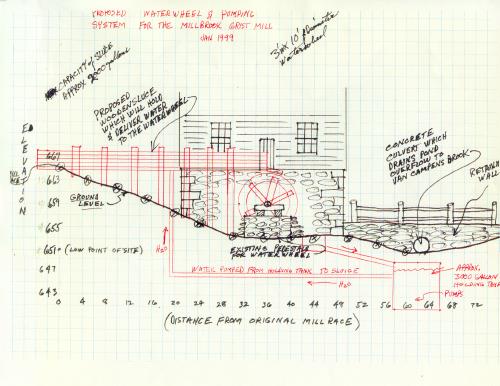 PROPOSED WATERWHEEL & PUMPING
SYSTEM FOR THE MILLBROOK GRIST MILL
JAN 1999
CAPACITY of SLUICE
APPROX 9000 gallons
3' wx 10' diameter
Waterwheel
PROPOSED
WOODEN SLUICE
WHICH WILL HOLD
& DELIVER WATER
TO THE WATERWHEEL
CONCRETE
CULVERT WHICH
DRAINS POND
OVERFLOW TO
VAN CAMPENS BROOK
RETAINING
WALL
ELEVATION
667
663
659
655
651 (LOW POINT OF SITE)
647
643
GROUND
LEVEL
H2O
EXISTING PEDESTAL
FOR WATERWHEEL
WATER PUMPED FROM HOLDING TANK TO SLUICE
H2O
APPROX.
3000 GALLON
HOLDING TANK
PUMPS
0 4 8 12 16 20 24 28 32 36 40 44 48 52 56 60 64 68 72
(DISTANCE FROM ORIGINAL MILL RACE)